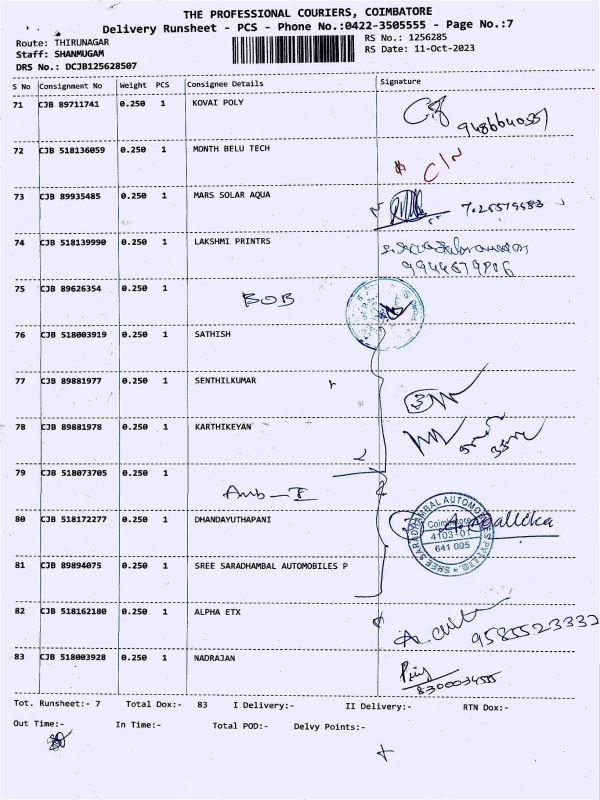 THE PROFESSIONAL COURIERS, COIMBATORE
Delivery Runsheet - PCS - Phone No.:0422-3505555 - Page No.:7
Route: THIRUNAGAR
Staff: SHANMUGAM
DRS No.: DCJB125628507
RS No.: 1256285
RS Date: 11-Oct-2023
S No Consignment No Weight PCS Consignee Details Signature
71 CJB 89711741 0.250 1 KOVAI POLY
72 CJB 518136059 0.250 1 MONTH BELU TECH
C/N
73 CJB 89935485 0.250 1 MARS SOLAR AQUA
74 CJB 518139990 0.250 1 LAKSHMI PRINTRS
75 CJB 89626354 0.250 1 BOB
76 CJB 518003919 0.250 1 SATHISH
77 CJB 89881977 0.250 1 SENTHILKUMAR
78 CJB 89881978 0.250 1 KARTHIKEYAN
79 CJB 518073705 0.250 1
80 CJB 518172277 0.250 1 DHANDAYUTHAPANI
SREE SARADHAMBAL AUTOMOBILES PVT LTD
Coimbatore
641 005
81 CJB 89894075 0.250 1 SREE SARADHAMBAL AUTOMOBILES P
82 CJB 518162180 0.250 1 ALPHA ETX
9585523332
83 CJB 518003928 0.250 1 NADRAJAN
Tot. Runsheet:- 7 Total Dox:- 83 I Delivery:- II Delivery:- RTN Dox:-
Out Time:- In Time:- Total POD:- Delvy Points:-